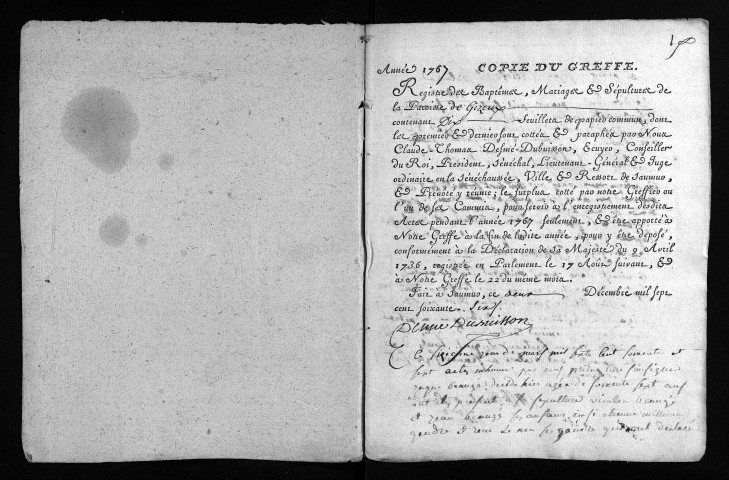 Année 1767 COPIE DU GREFFE.
Registre des Baptêmes, Mariages & Sépultures de
la Paroisse de Gizeux
contenant Dix feuillets de papier commun, dont
les premier & dernier sont cottés & paraphés par Nous
Claude-Thomas Desmé-Dubuisson, Ecuyer, Conseiller
du Roi, Président, Sénéchal, Lieutenant-Général & Juge
ordinaire en la Sénéchaussée, Ville & Ressort de Saumur,
& Prévôté y réunie; le surplus cotté par notre Greffier ou
l'un de ses Commis, pour servir à l'enregistrement desdits
Actes pendant l'année 1767 seulement, & être apporté à
Notre Greffe à la fin de ladite année, pour y être déposé,
conformément à la Déclaration de Sa Majesté du 9 Avril
1736, registrée en Parlement le 17 Août suivant, &
à Notre Greffe le 22 du même mois.
Fait à Saumur, ce deux Décembre mil sept
cent soixante six
Desmé Dubuisson
Ce jour de mars mil sept cent soixante et
sept a été inhumé par nous soussigné
beauge age de soixante sept ans
ont été presents a sa sepulture nicolas beaugé
et jean beaugé ses enfans etienne
gendre et rene son gendre qui ont declaré